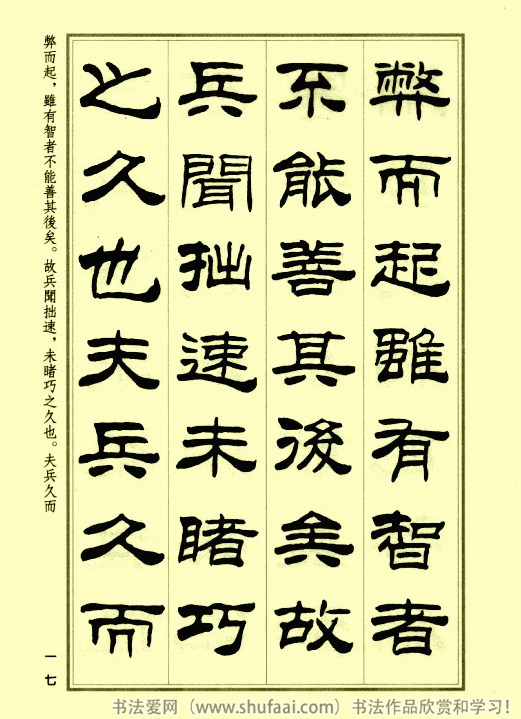 弊而起雖有智者
不能善其後矣故
兵聞拙速未睹巧
之久也夫兵久而
弊而起，雖有智者不能善其後矣。故兵聞拙速，未睹巧之久也。夫兵久而
一七
书法爱网（www.shufaai.com）书法作品欣赏和学习！